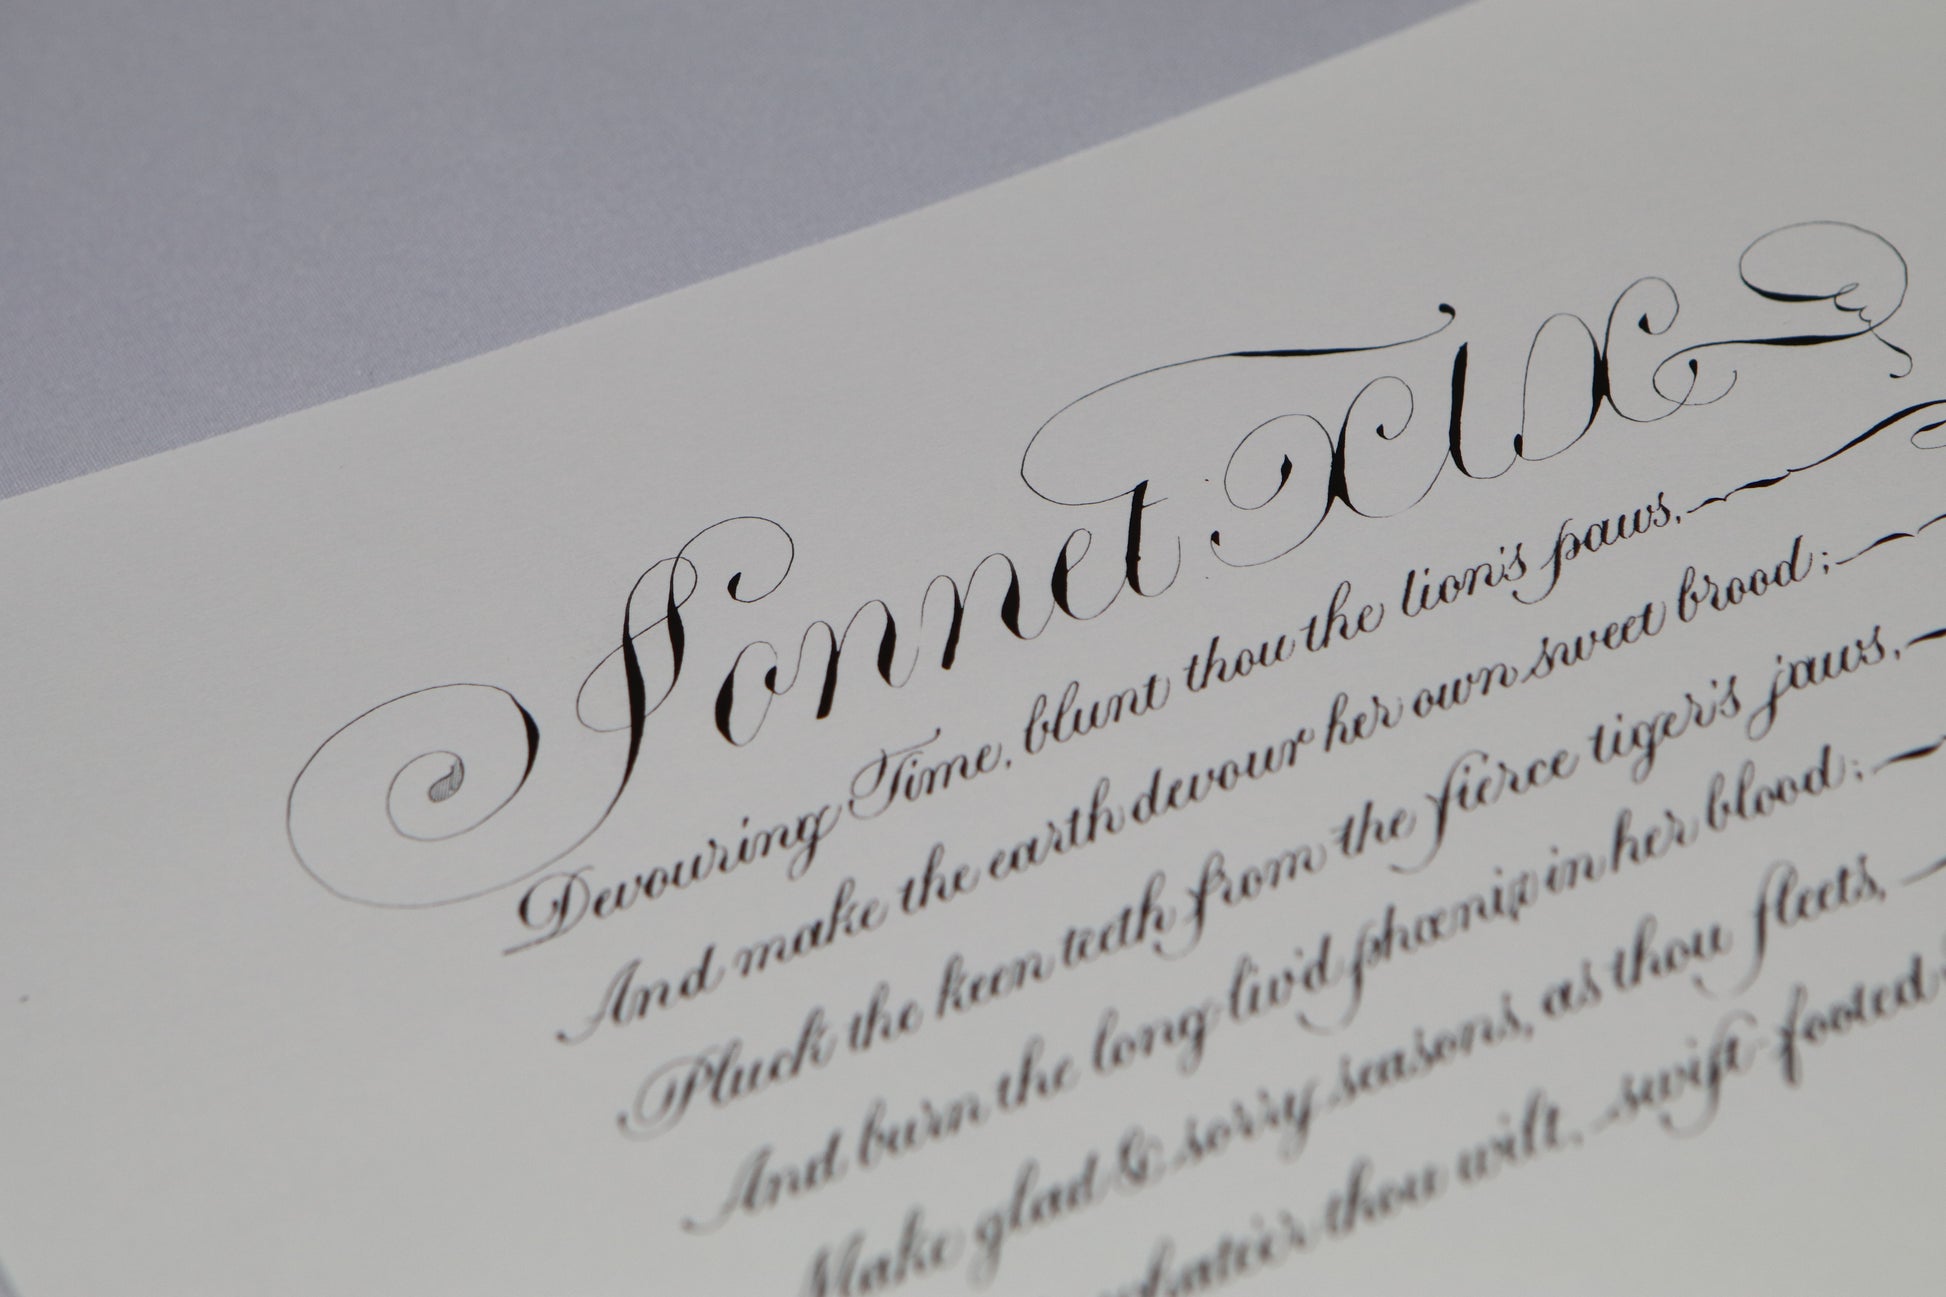 Sonnet XIX
Devouring Time, blunt thou the lion's paws,
And make the earth devour her own sweet brood;
Pluck the keen teeth from the fierce tiger's jaws,
And burn the long-liv'd phœnix in her blood;
Make glad & sorry seasons, as thou fleets,
whate'er thou wilt, swift-footed